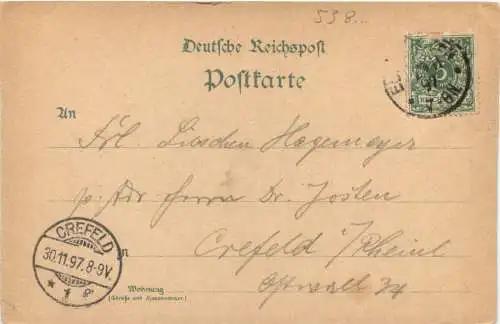 538...
Deutsche Reichspost
Postkarte
An
Frl. Lieschen Hagemeyer
p. Adr Herrn Dr. Josten
in Crefeld /Rheinl
Ostwall 34
Wohnung
(Straße und Hausnummer)
CREFELD
30.11.97. 8-9V.
* 1 e *